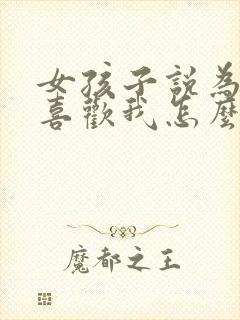 女孩子說為
喜歡我怎麼
魔都之王